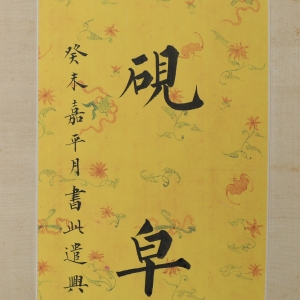 硯皁
癸未嘉平月書此遣興